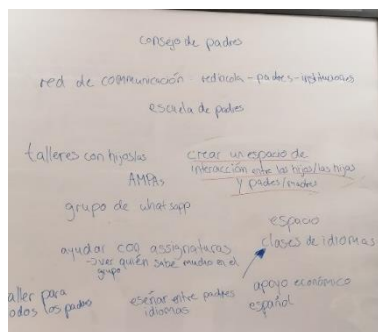 consejo de padres
red de comunicación: - padres - instituciones
escuela de padres
talleres con hijos/as
crear un espacio de
interacción entre los hijos/las hijas
y padres/madres
AMPAs
grupo de whatsapp
espacio
ayudar con assignaturas
→ ver quién sabe mucho en el
grupo
clases de idiomas
aller para
odos los padres
eseñar entre padres
idiomas
apoyo económico
español